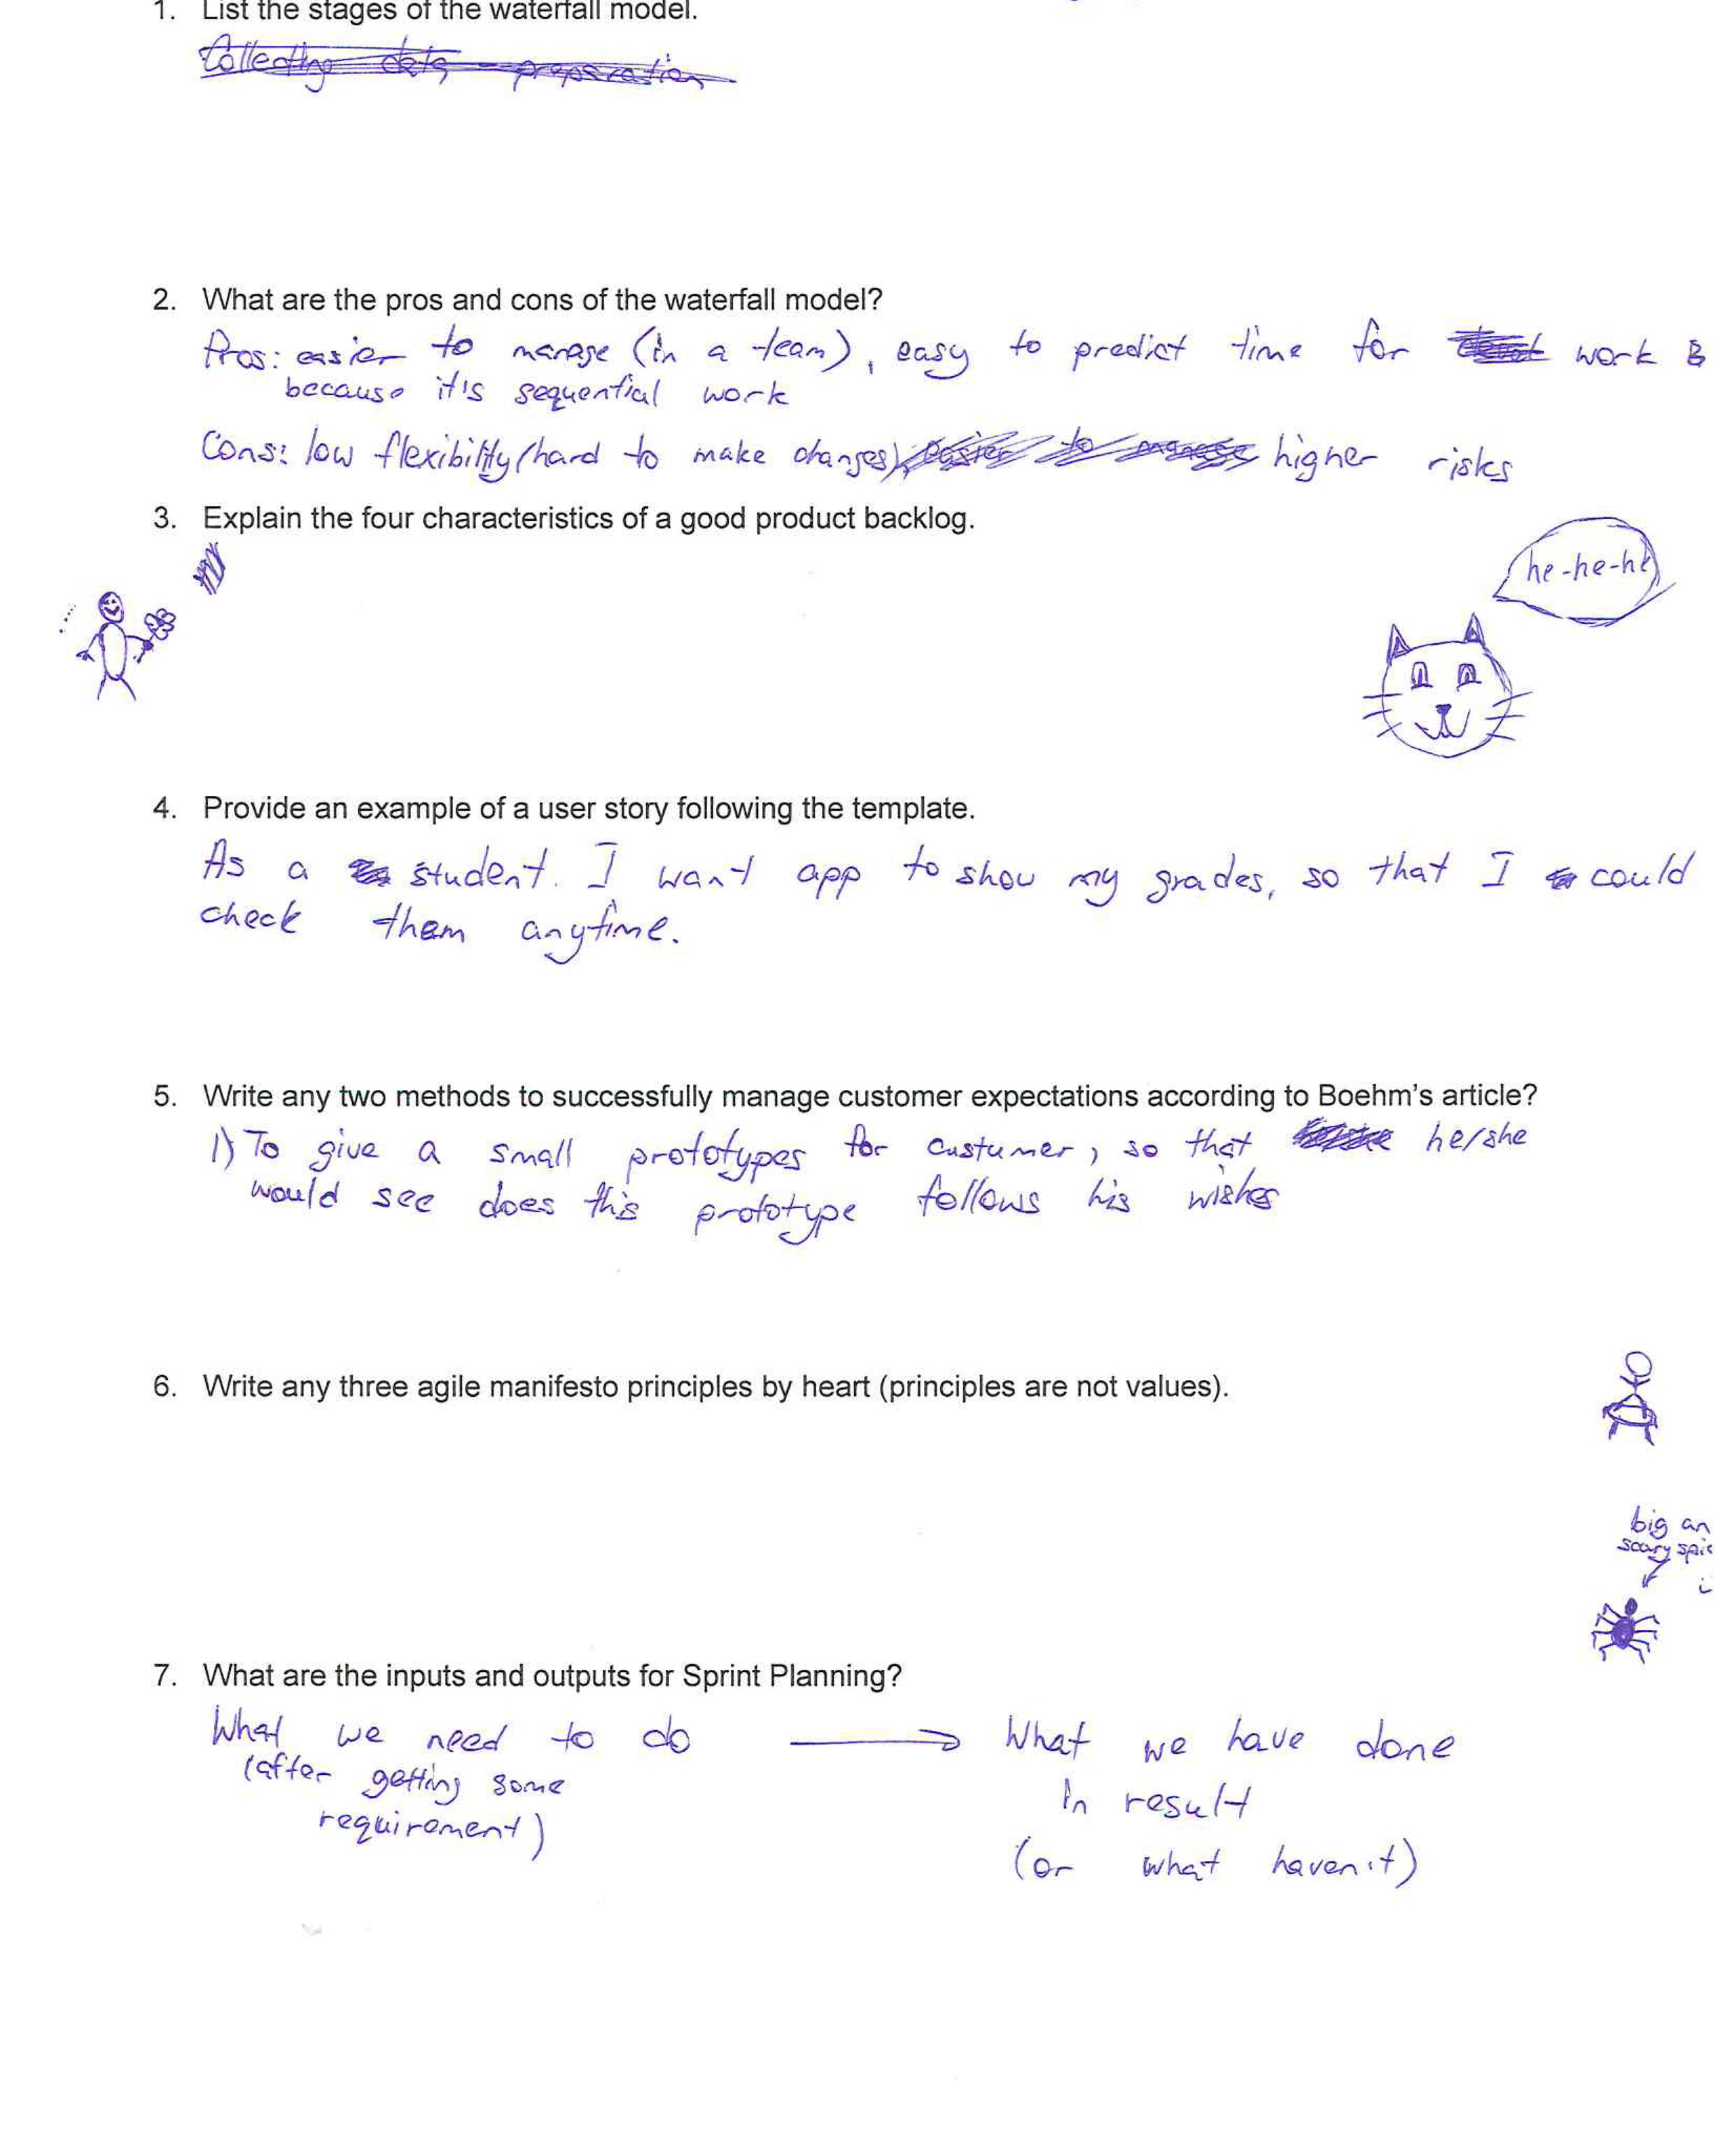 1. List the stages of the waterfall model.
Collecting data - preparation
2. What are the pros and cons of the waterfall model?
Pros: easier to manage (in a team), easy to predict time for work &
because it's sequential work
Cons: low flexibility (hard to make changes), easier to manage higher risks
3. Explain the four characteristics of a good product backlog.
he-he-he
4. Provide an example of a user story following the template.
As a student. I want app to show my grades, so that I could
check them anytime.
5. Write any two methods to successfully manage customer expectations according to Boehm's article?
1) To give a small prototypes for custumer, so that he/she
would see does this prototype follows his wishes
6. Write any three agile manifesto principles by heart (principles are not values).
big an
scary spi
7. What are the inputs and outputs for Sprint Planning?
What we need to do → What we have done
(after getting some
in result
requirement)
(or what haven't)